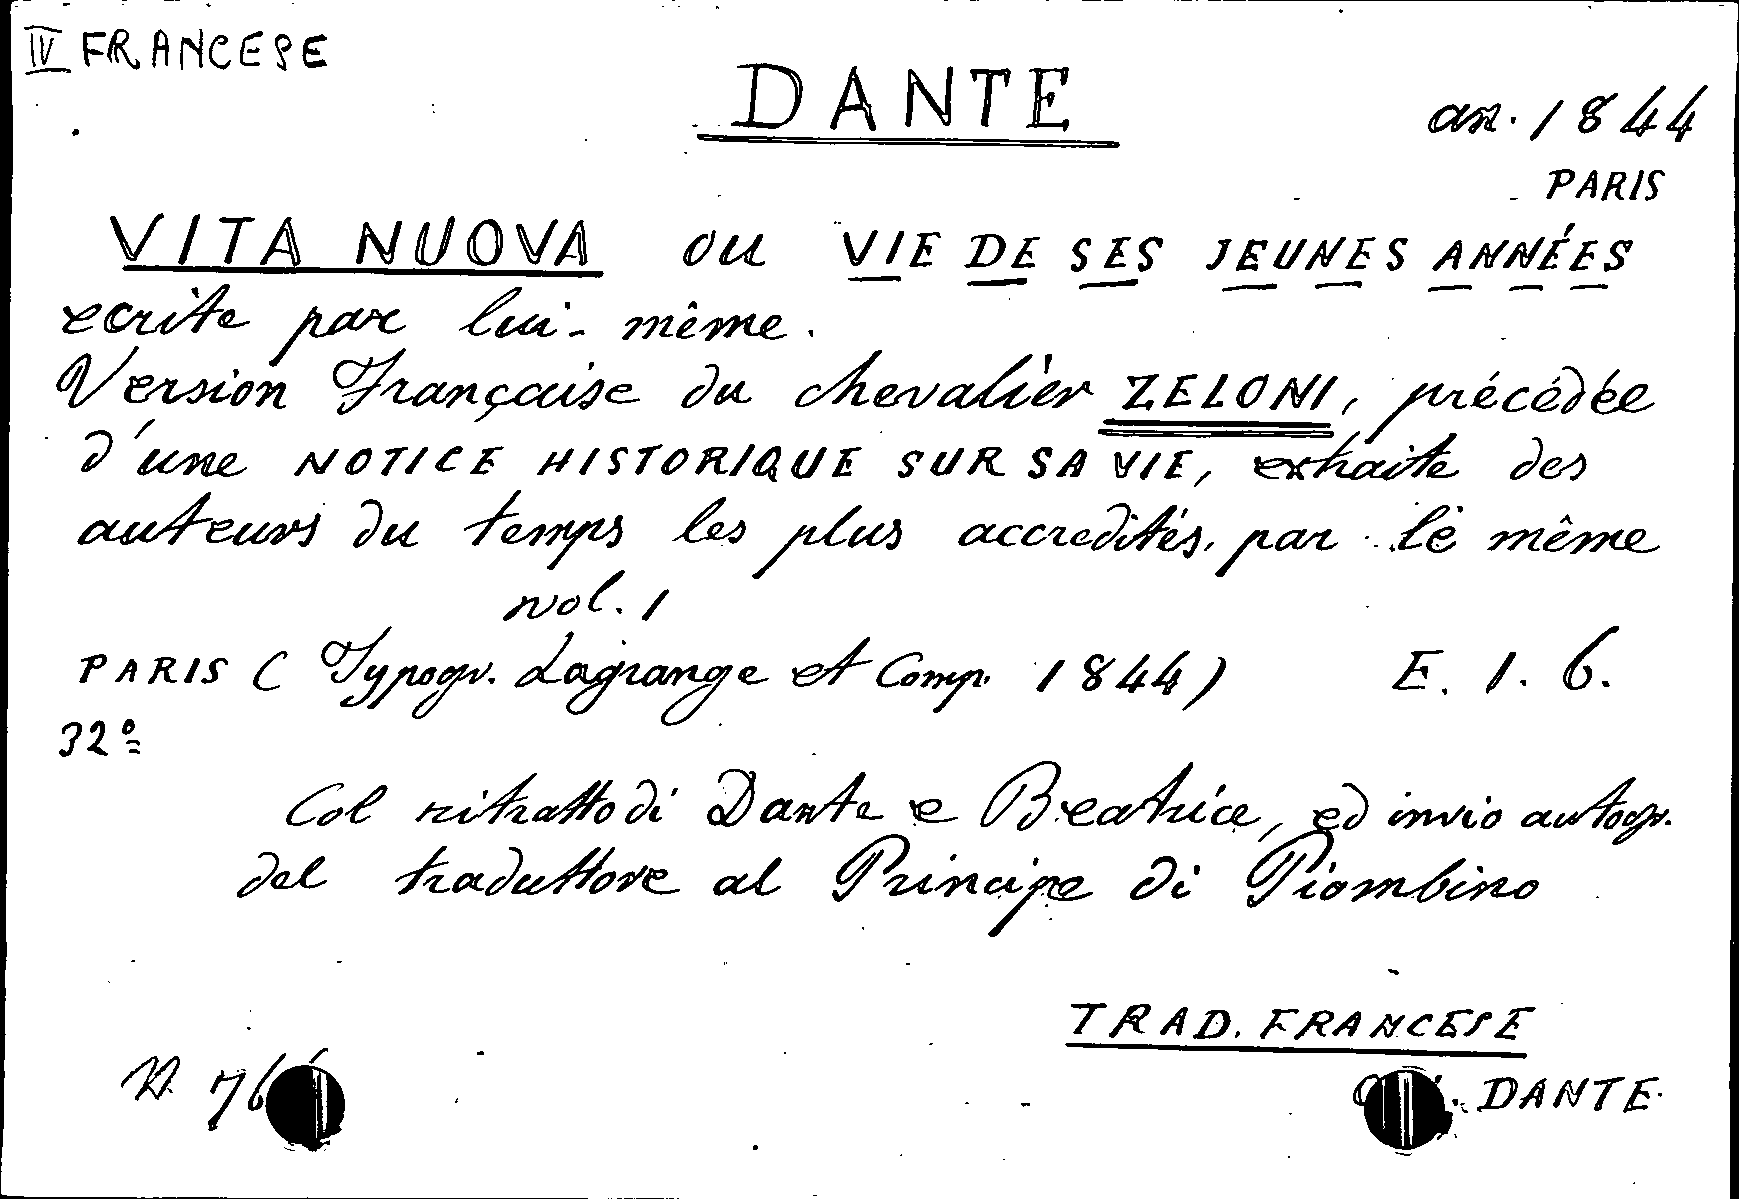 IV FRANCESE
DANTE
an. 1844
PARIS
VITA NUOVA ou VIE DE SES JEUNES ANNÉES
ecrite par lui-même.
Version Française du chevalier ZELONI, précédée
d'une NOTICE HISTORIQUE SUR SA VIE, extraite des
auteurs du temps les plus accredités, par le même
vol. 1
PARIS ( Typogr. Lagrange et Comp. 1844) E. 1. 6.
32º
Col ritratto di Dante e Beatrice, ed invio autogr.
del traduttore al Principe di Piombino
TRAD. FRANCESE
DANTE